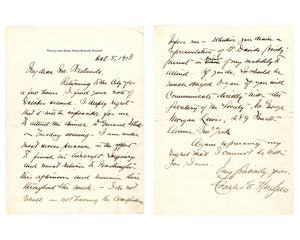 Thirty-two East Sixty-fourth Street
Oct. 5/1918
My dear Mr. Rhelinds,
Returning to the City for
a few hours I find your note of
October second. I deeply regret
that it will be impossible for me
to attend the dinner to General
on Tuesday evening. I am under
most severe pressure in the effort
to finish an Aircraft Inquiry
and must return to Washington
this afternoon and remain there
throughout the week. I do not
recall - not having the
before me - whether you desire a
representation of St. David's Society
present in
attend. If you do, I should be
much obliged to you if you will
communicate directly with the
Secretary of the Society, Mr. George
Morgan Lewis, 289 Fourth
Avenue New York
Again expressing my
regret that I cannot be with
you, I am,
Very sincerely yours
Charles E. Hughes